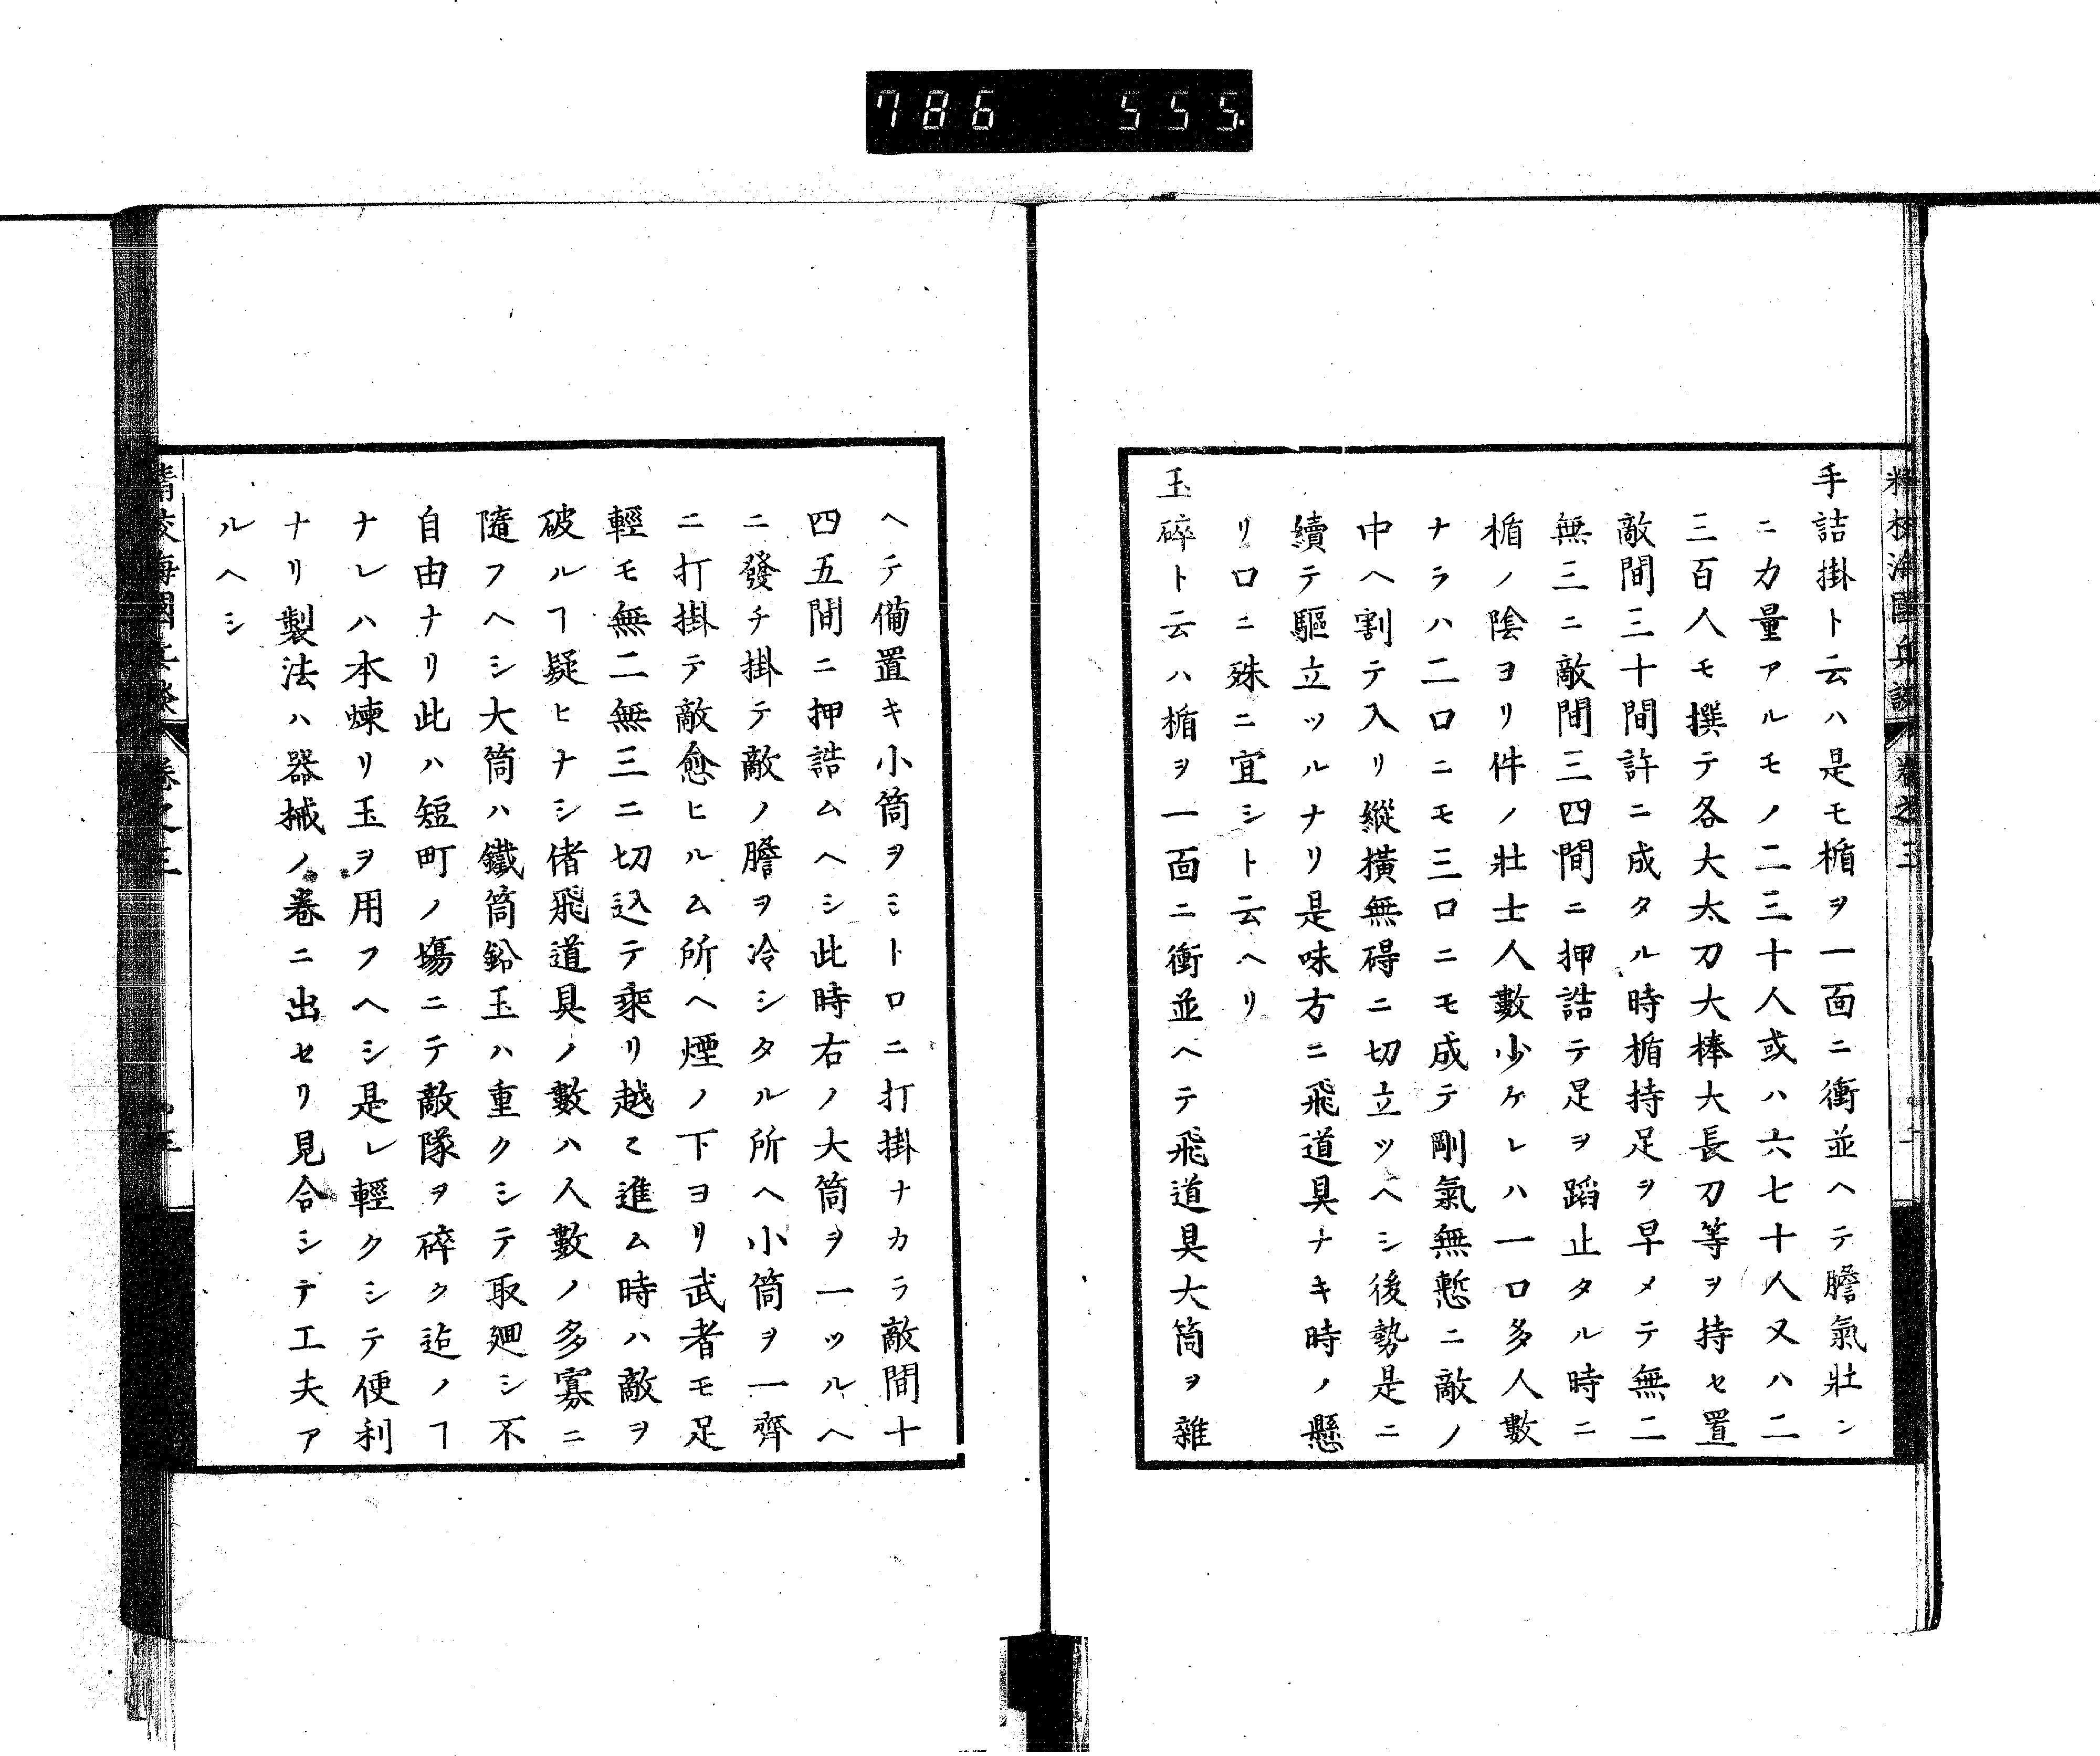 786 555
精校海國兵談 卷之三
手詰掛ト云ハ是モ楯ヲ一面ニ衝並ヘテ膽氣壯ン
ニ力量アルモノ二三十人或ハ六七十人又ハ二
三百人モ撰テ各大太刀大棒大長刀等ヲ持セ置
敵間三十間許ニ成タル時楯持足ヲ早メテ無二
無三ニ敵間三四間ニ押詰テ足ヲ蹈止タル時ニ
楯ノ陰ヨリ件ノ壯士人數少ケレハ一口多人數
ナラハ二口ニモ三口ニモ成テ剛氣無慙ニ敵ノ
中ヘ割テ入リ縱橫無碍ニ切立ツヘシ後勢是ニ
續テ驅立ツルナリ是味方ニ飛道具ナキ時ノ懸
リ口ニ殊ニ宜シト云ヘリ
玉碎ト云ハ楯ヲ一面ニ衝並ヘテ飛道具大筒ヲ雜
ヘテ備置キ小筒ヲミトロニ打掛ナカラ敵間十
四五間ニ押詰ムヘシ此時右ノ大筒ヲ一ツルヘ
ニ發チ掛テ敵ノ膽ヲ冷シタル所ヘ小筒ヲ一齊
ニ打掛テ敵愈ヒルム所ヘ煙ノ下ヨリ武者モ足
輕モ無二無三ニ切込テ乘リ越ミ進ム時ハ敵ヲ
破ルヿ疑ヒナシ偖飛道具ノ數ハ人數ノ多寡ニ
隨フヘシ大筒ハ鐵筒鉛玉ハ重クシテ取廻シ不
自由ナリ此ハ短町ノ塲ニテ敵隊ヲ碎ク迄ノヿ
ナレハ本煉リ玉ヲ用フヘシ是レ輕クシテ便利
ナリ製法ハ器械ノ卷ニ出セリ見合シテ工夫ア
ルヘシ
精校海國兵談 卷之三